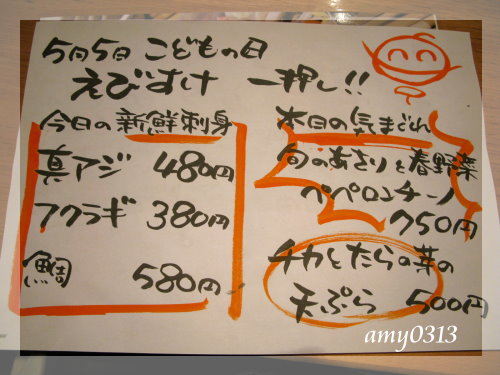 5月5日 こどもの日
えびすけ 一押し!!
今日の新鮮刺身
真アジ 480円
フクラギ 380円
鯛 580円
本日の気まぐれ
旬のあさりと春野菜
ペペロンチーノ
750円
チカとたらの芽の
天ぷら 500円
amy0313